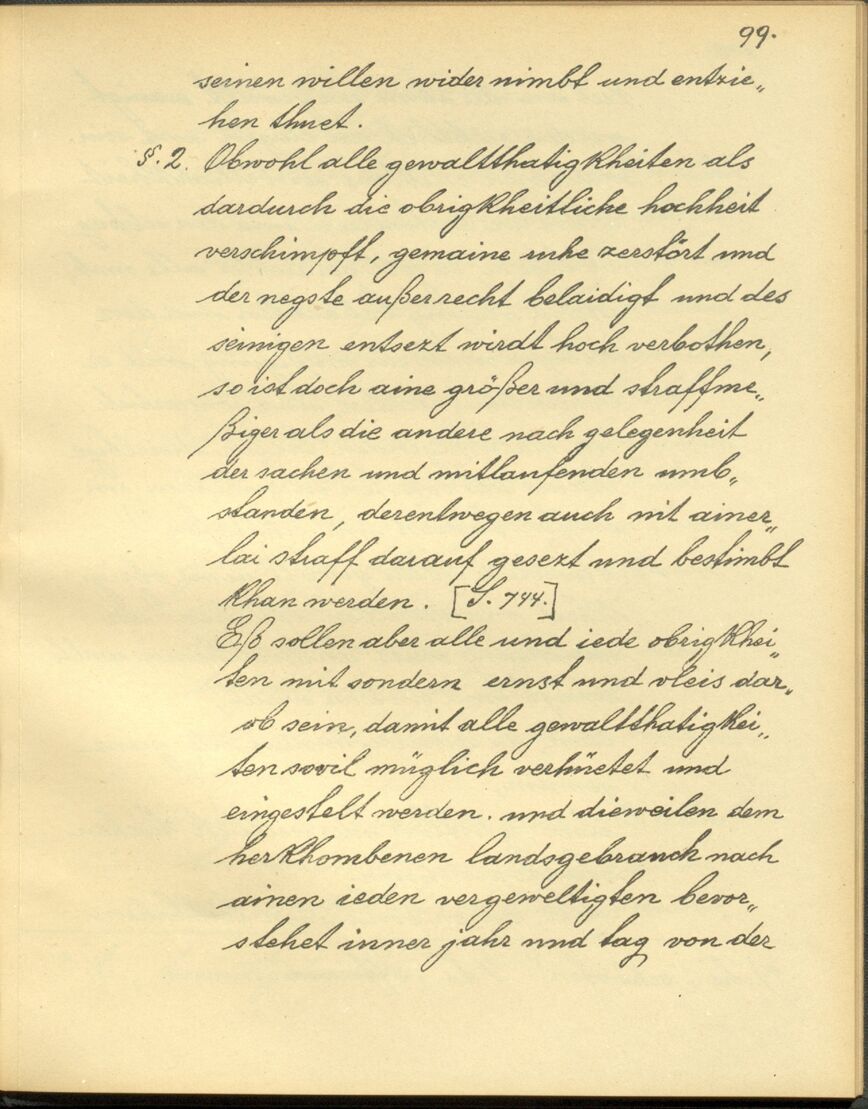 99.
seinen willen wider nimbt und entzie„
hen thuet.
§. 2. Obwohl alle gewaltthatigkheiten als
dardurch die obrigkheitliche hochheit
verschimpft, gemaine ruhe zerstört und
der negste außer recht belaidigt und des
seinigen entsezt wirdt hoch verbothen,
so ist doch aine größer und straffme„
ßiger als die andere nach gelegenheit
der sachen und mitlaufenden umb„
standen, derentwegen auch nit ainer„
lai straff darauf gesezt und bestimbt
khan werden. [S. 744.]
Eß sollen aber alle und iede obrigkhei„
ten mit sondern ernst und vleis dar„
ob sein, damit alle gewaltthatigkei„
ten sovil müglich verhüetet und
eingestelt werden. und dieweilen dem
herkhombenen landsgebrauch nach
ainen ieden vergeweltigten bevor„
stehet inner jahr und tag von der